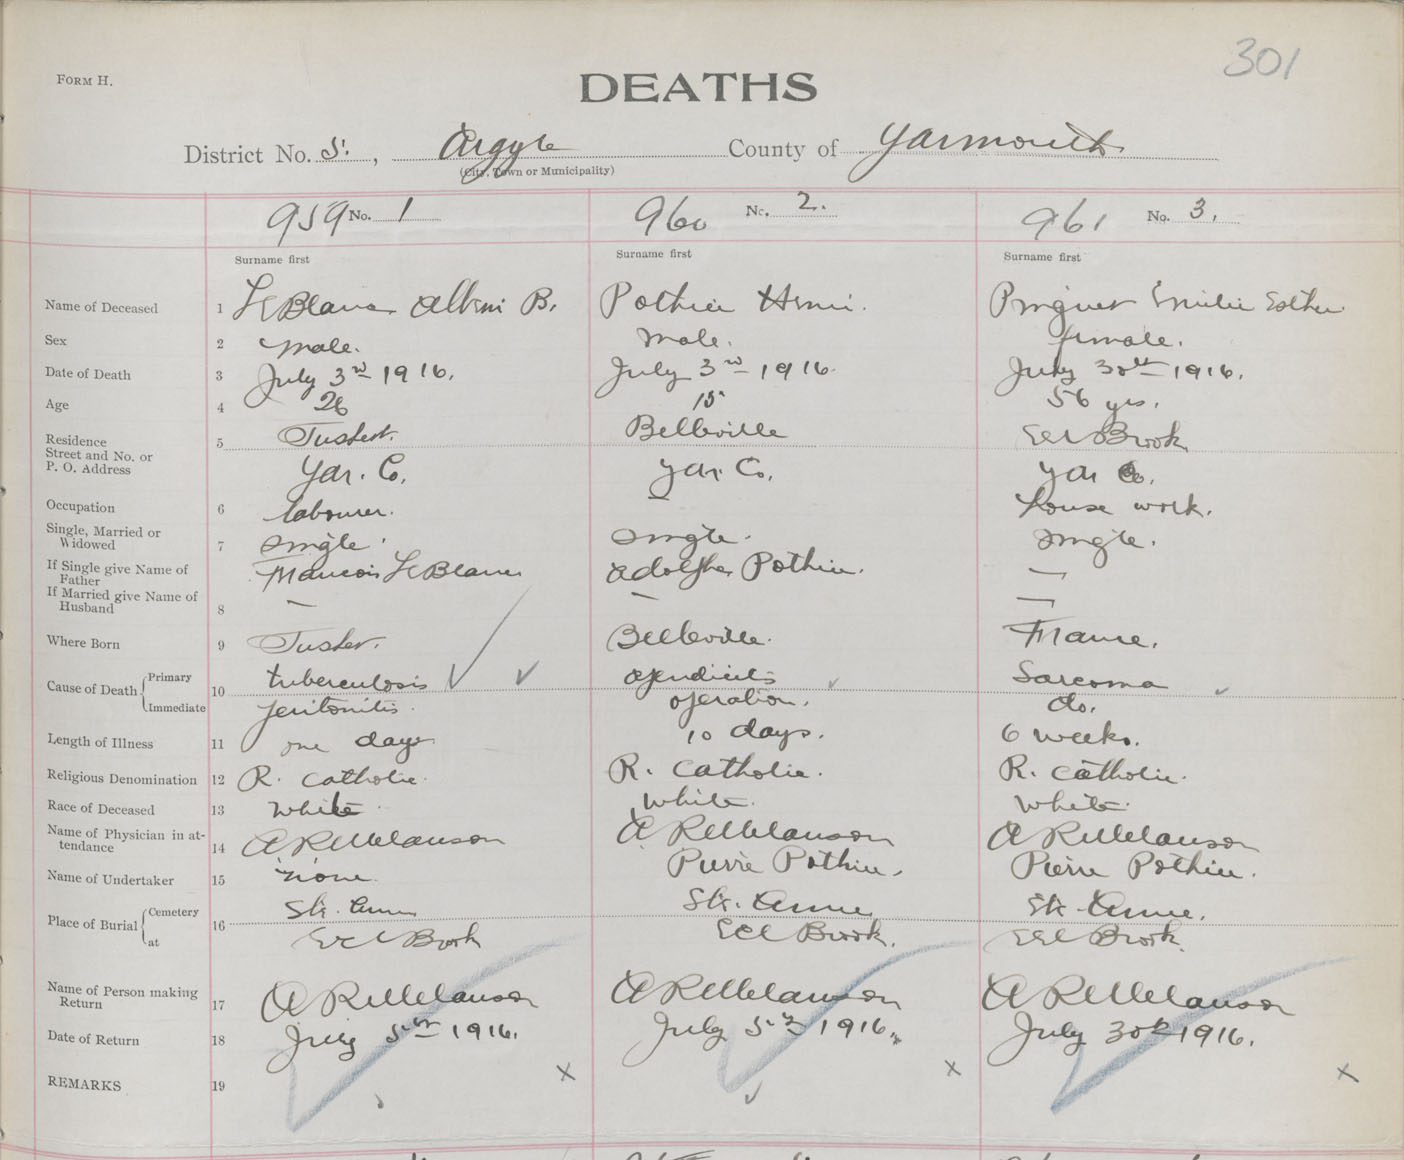 301
FORM H.
DEATHS
District No. 5. , Argyle County of Yarmouth
(City, Town or Municipality)
959 No. 1 960 No. 2. 961 No. 3.
Surname first Surname first Surname first
Name of Deceased 1 LeBlanc Albini B. Pothier Henri. Emilie Esther
Sex 2 male. male. female.
Date of Death 3 July 3rd 1916. July 3rd 1916. July 30th 1916.
Age 4 26 15 56 yrs.
Residence Street and No. or P. O. Address 5 Tusket. Belleville Eel Brook
Yar. Co. Yar. Co. Yar Co.
Occupation 6 labourer. — house work.
Single, Married or Widowed 7 single. single. single.
If Single give Name of Father Francois LeBlanc Adolphe Pothier. —
If Married give Name of Husband 8 — — —
Where Born 9 Tusket. Belleville. France.
Cause of Death Primary 10 tuberculosis apendicitis Sarcoma
Immediate peritonitis. operation. do.
Length of Illness 11 one day 10 days. 6 weeks.
Religious Denomination 12 R. Catholic. R. Catholic. R. Catholic.
Race of Deceased 13 white white. white.
Name of Physician in attendance 14 A R Melanson A R Melanson A R Melanson
Name of Undertaker 15 none. Pierre Pothier. Pierre Pothier.
Place of Burial Cemetery 16 Ste. Anne Ste. Anne Ste. Anne.
at Eel Brook Eel Brook. Eel Brook.
Name of Person making Return 17 A R Melanson A R Melanson A R Melanson
Date of Return 18 July 5th 1916. July 5th 1916. July 30th 1916.
REMARKS 19 x x x